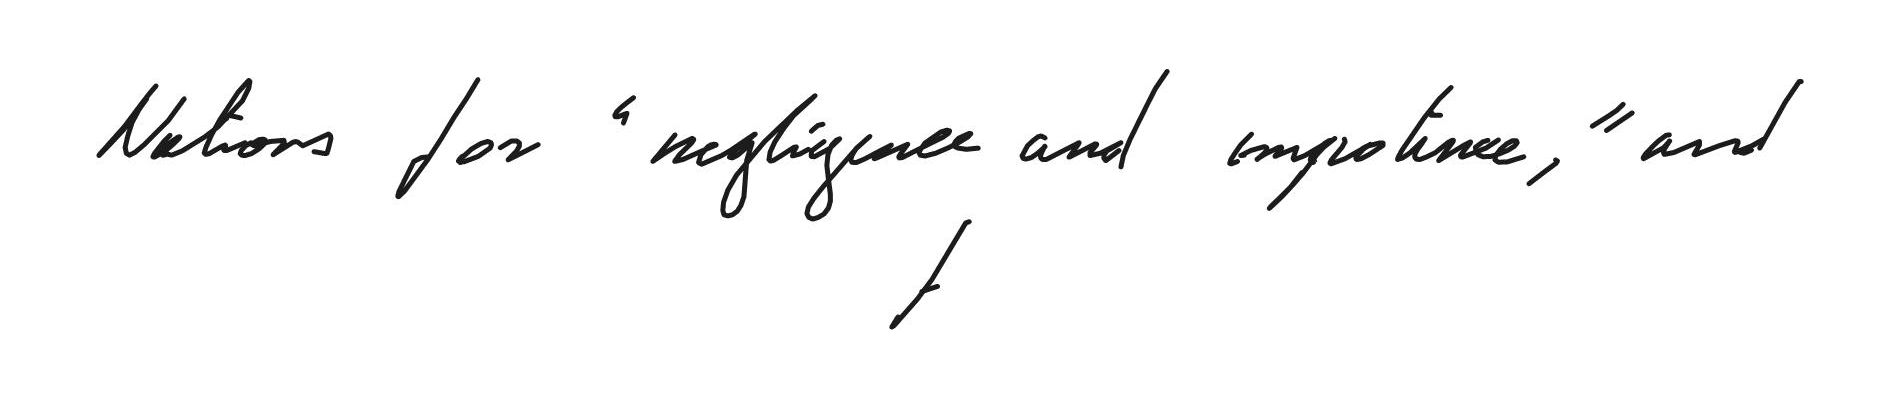 Nations for "negligence and impotence," and